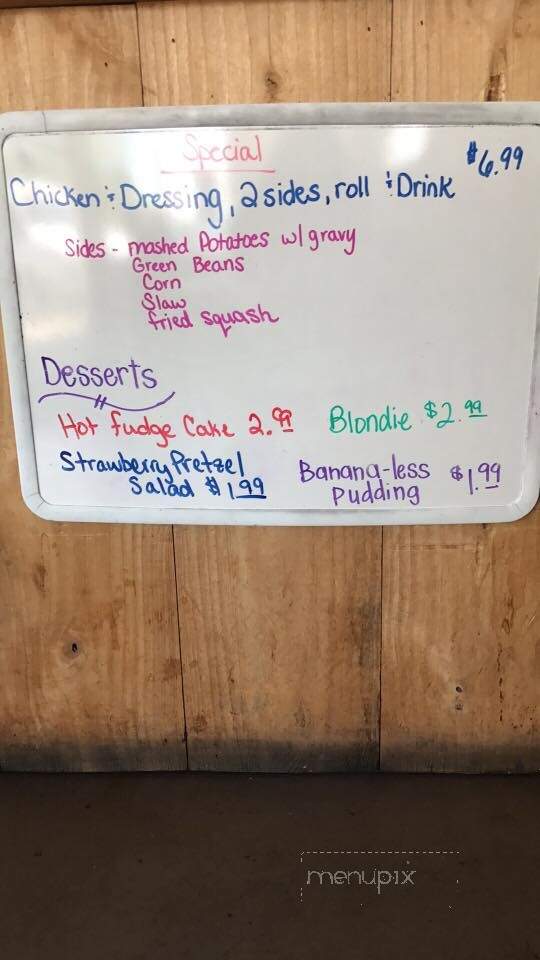 Special
$6.99
Chicken & Dressing, 2 sides, roll & Drink
Sides - mashed Potatoes w/ gravy
Green Beans
Corn
Slaw
fried squash
Desserts
Hot fudge Cake 2.99
Blondie $2.99
Strawberry Pretzel
Salad $1.99
Banana-less $1.99
Pudding
menupix